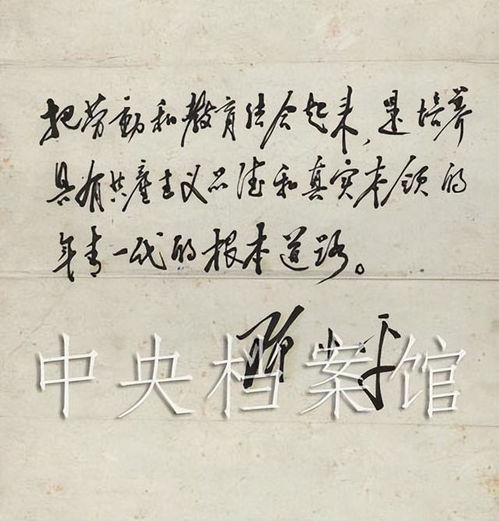 把劳动和教育结合起来，是培养
具有共产主义品德和真实本领的
年青一代的根本道路。
邓小平
中央档案馆